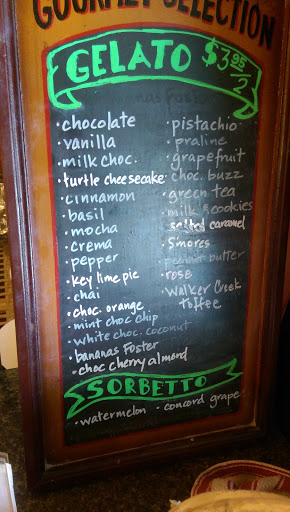 GOURMET SELECTION
GELATO $3.95/2
• chocolate
• vanilla
• milk choc.
• turtle cheesecake
• cinnamon
• basil
• mocha
• crema
• pepper
• key lime pie
• chai
• choc. orange
• mint choc chip
• white choc. coconut
• bananas Foster
• choc cherry almond
• pistachio
• praline
• grapefruit
• choc. buzz
• green tea
• milk & cookies
• salted caramel
• S'mores
• peanut butter
• rose
• Walker Creek
toffee
SORBETTO
• watermelon • concord grape